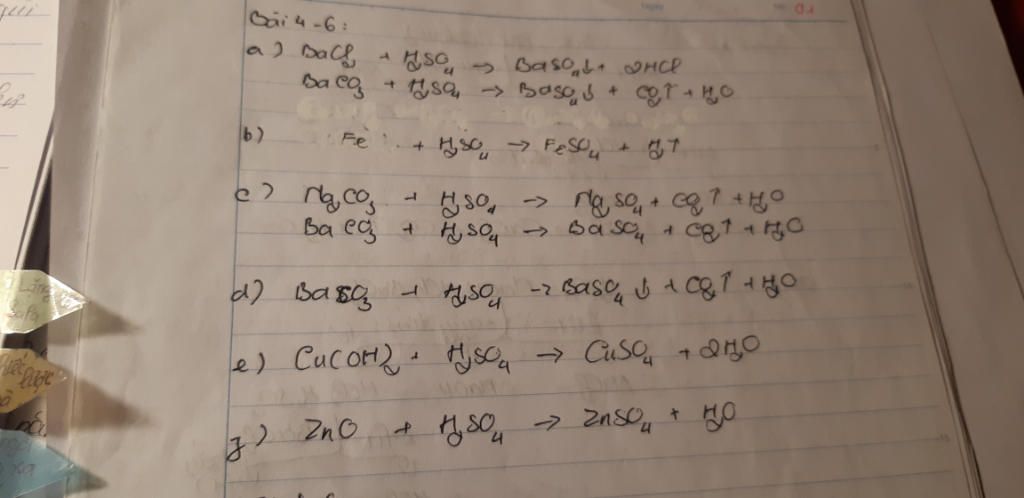 Bài 4-6:
a) BaCl₂ + H₂SO₄ → BaSO₄↓ + 2HCl
BaCO₃ + H₂SO₄ → BaSO₄↓ + CO₂↑ + H₂O
b) Fe + H₂SO₄ → FeSO₄ + H₂↑
c) Na₂CO₃ + H₂SO₄ → Na₂SO₄ + CO₂↑ + H₂O
BaCO₃ + H₂SO₄ → BaSO₄ + CO₂↑ + H₂O
d) BaCO₃ + H₂SO₄ → BaSO₄↓ + CO₂↑ + H₂O
e) Cu(OH)₂ + H₂SO₄ → CuSO₄ + 2H₂O
g) ZnO + H₂SO₄ → ZnSO₄ + H₂O